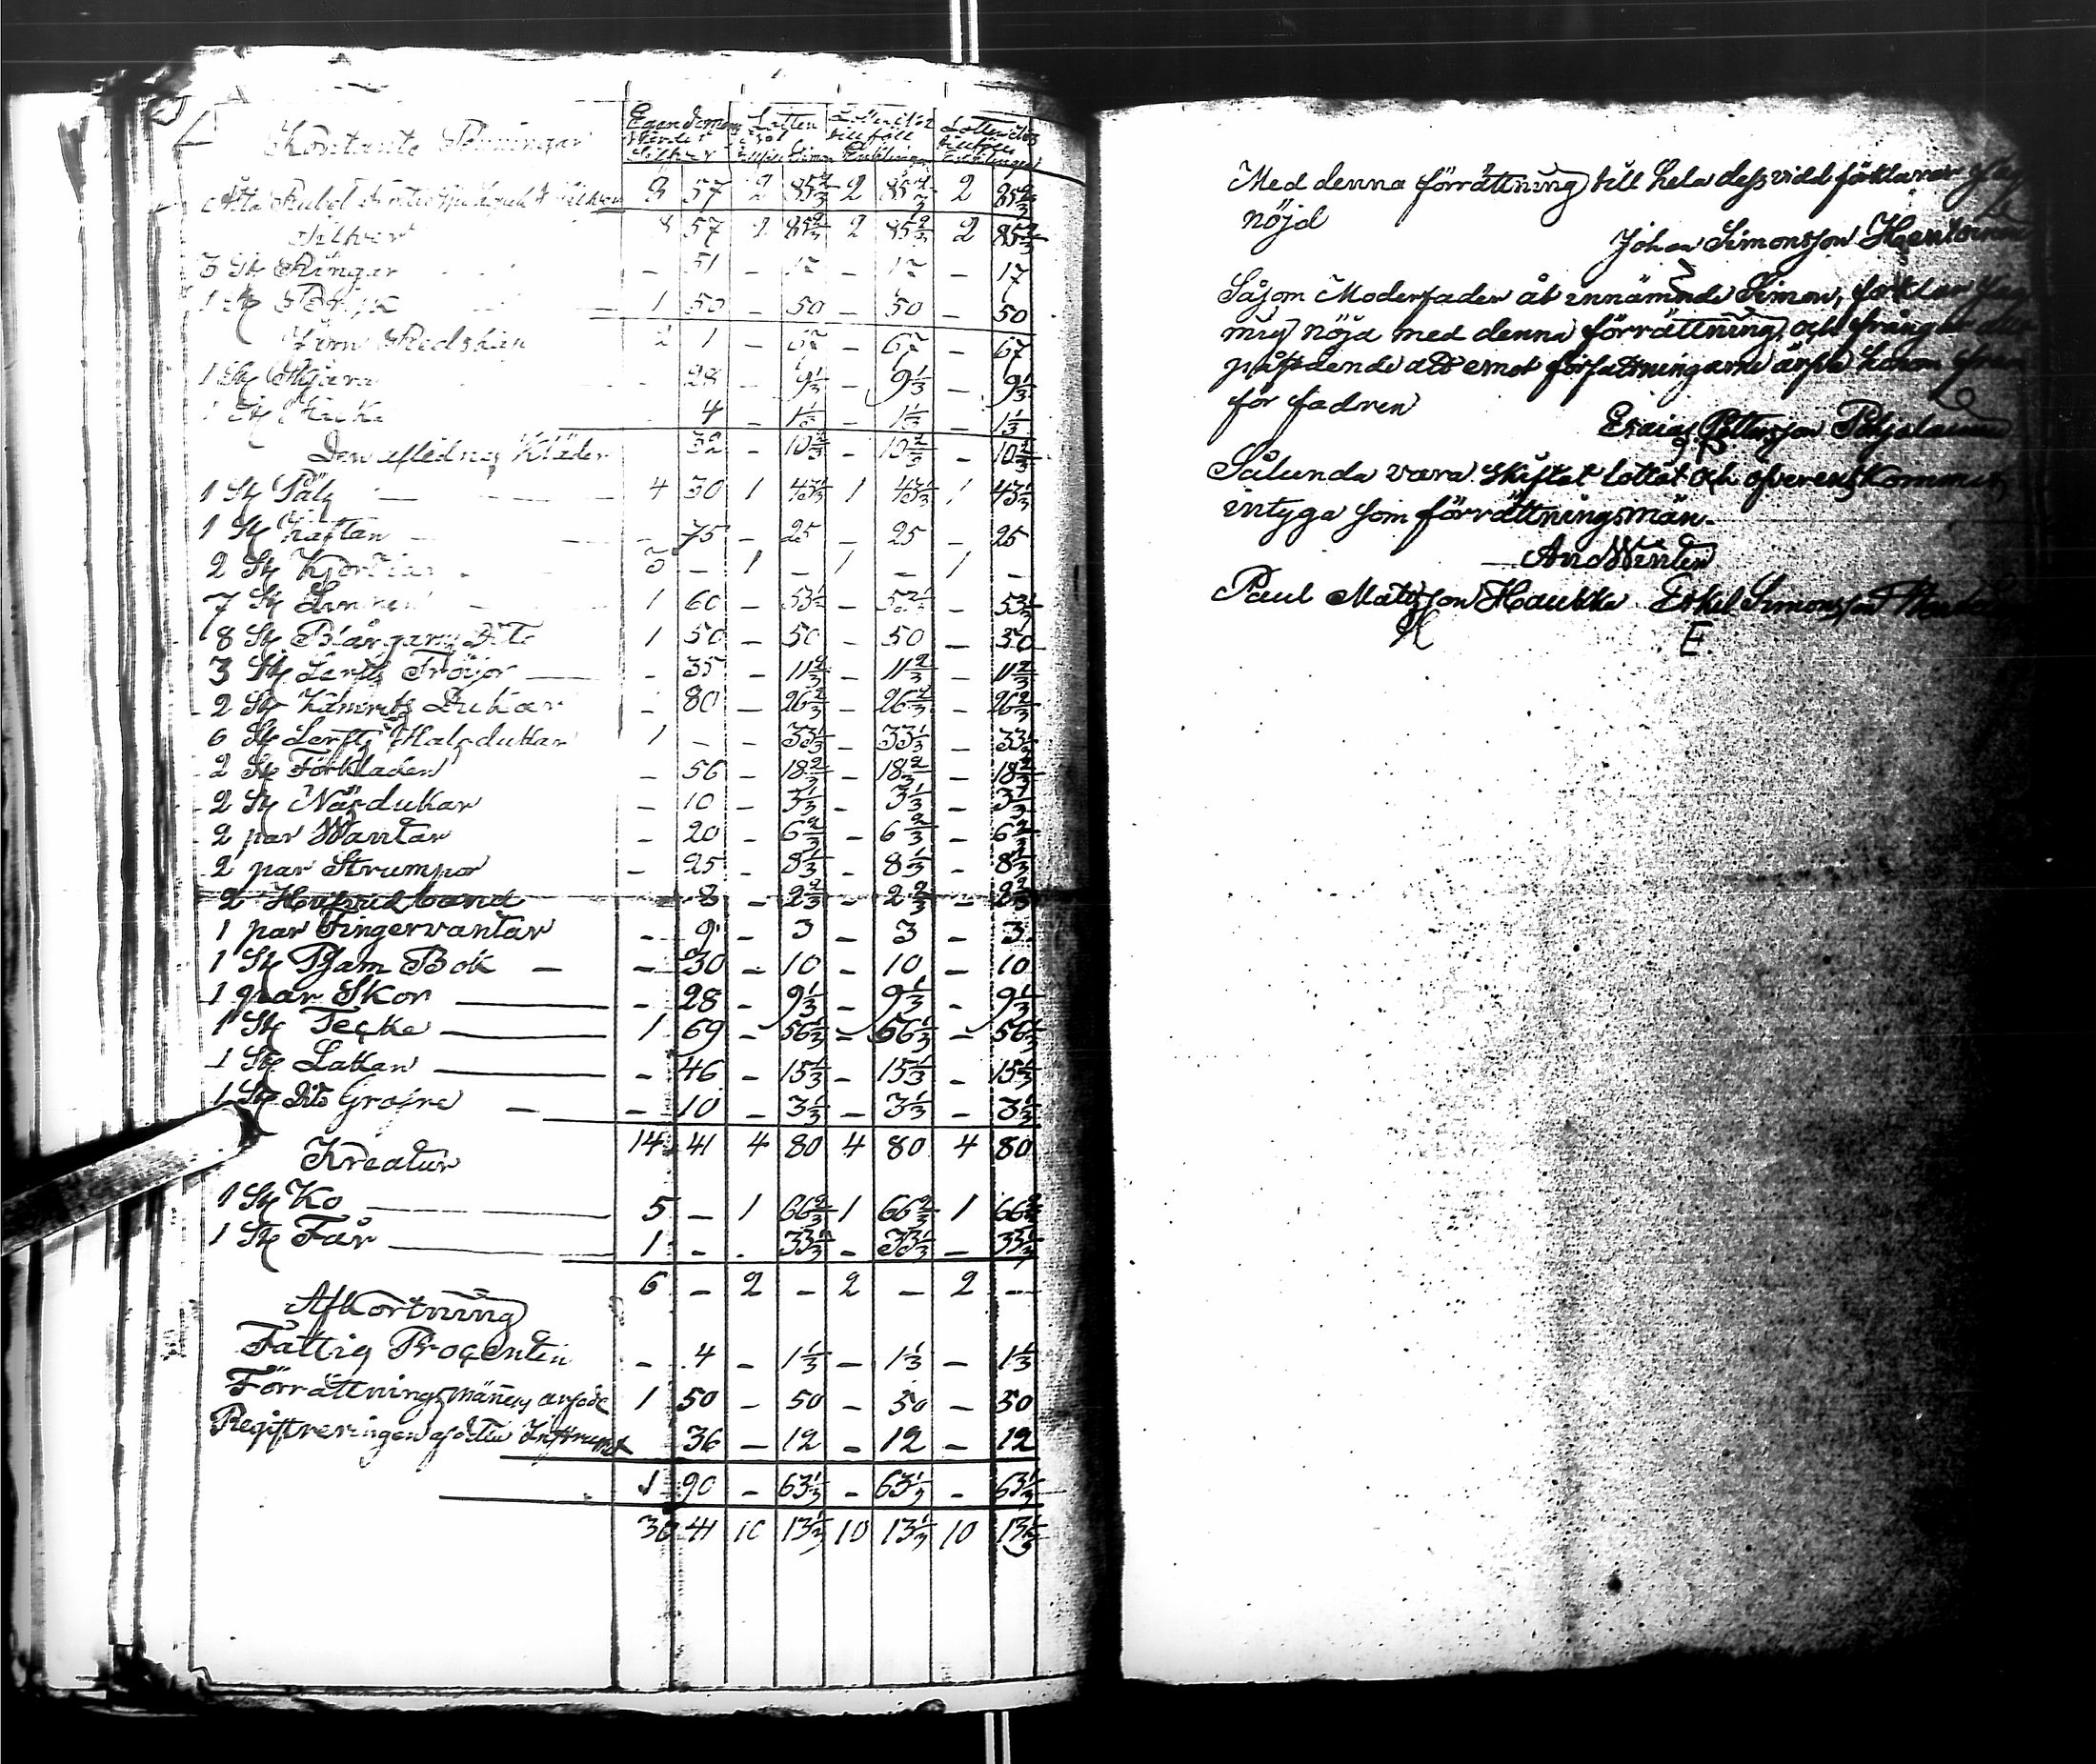 Kontante Penningar
Egendomens Wärde i Silfver
Lotten
Lotter
tillföll
Lotter
Åtta Rubel femtio sju Kopek Silfver 8 57 2 85 2/3 2 85 2/3 2 85 2/3
Silfver 8 57 2 85 2/3 2 85 2/3 2 85 2/3
3 St Ringar - 51 - 17 - 17 - 17
1 St 1 50 - 50 - 50 - 50
Jern Redskap 2 1 - 67 - 67 - 67
1 St Skjära - 28 - 9 1/3 - 9 1/3 - 9 1/3
1 St Hacka - 4 - 1 1/3 - 1 1/3 - 1 1/3
Den aflednas Kläder 32 - 10 2/3 - 10 2/3 - 10 2/3
1 St Päls 4 30 1 43 1/3 1 43 1/3 1 43 1/3
1 St Kaftan - 75 - 25 - 25 - 25
2 St Kjortlar 3 - 1 - 1 - 1 -
7 St Linnen 1 60 - 53 1/3 - 53 1/3 - 53 1/3
8 St Blårgarns Dito 1 50 - 50 - 50 - 50
3 St Lerfts Tröijor - 35 - 11 2/3 - 11 2/3 - 11 2/3
2 St Kamrits Dukar - 80 - 26 2/3 - 26 2/3 - 26 2/3
6 St Lerfts Halsdukar 1 - - 33 1/3 - 33 1/3 - 33 1/3
2 St Förkläden - 56 - 18 2/3 - 18 2/3 - 18 2/3
2 St Näsdukar - 10 - 3 1/3 - 3 1/3 - 3 1/3
2 par Wantar - 20 - 6 2/3 - 6 2/3 - 6 2/3
2 par Strumpor - 25 - 8 1/3 - 8 1/3 - 8 1/3
2 Hufvudband - 8 - 2 2/3 - 2 2/3 - 2 2/3
1 par Fingervantar - 9 - 3 - 3 - 3
1 St Psalm Bok - 30 - 10 - 10 - 10
1 par Skor - 28 - 9 1/3 - 9 1/3 - 9 1/3
1 St Tecke 1 69 - 56 1/3 - 56 1/3 - 56 1/3
1 St Lakan - 46 - 15 1/3 - 15 1/3 - 15 1/3
1 St Dito Gröfre - 10 - 3 1/3 - 3 1/3 - 3 1/3
14 41 4 80 4 80 4 80
Kreatur
1 St Ko 5 - 1 66 2/3 1 66 2/3 1 66 2/3
1 St Får 1 - - 33 1/3 - 33 1/3 - 33 1/3
6 - 2 - 2 - 2 -
Afkortning
Fattig Procenten - 4 - 1 1/3 - 1 1/3 - 1 1/3
Förrättningsmännens arfvode 1 50 - 50 - 50 - 50
Registreringen af detta Instrument 36 - 12 - 12 - 12
1 90 - 63 1/3 - 63 1/3 - 63 1/3
30 41 10 13 1/3 10 13 1/3 10 13 1/3
Med denna förrättning till hela dess vidd förklarar jag
nöjd
Johan Simonsson
Såsom Moderfader åt ennämnde Simon, förklarar Jag
mig nöjd med denna förrättning, och frångår det
påstående att emot författningarne ärfva honom
för fadren
Esaias Pettersson Pohjalainen
Sålunda vara Skiftat lottat och öfverenskommit,
intyga som förrättningsmän
And Wintén
Paul Matsson Haukka Eskel Simonsson
E